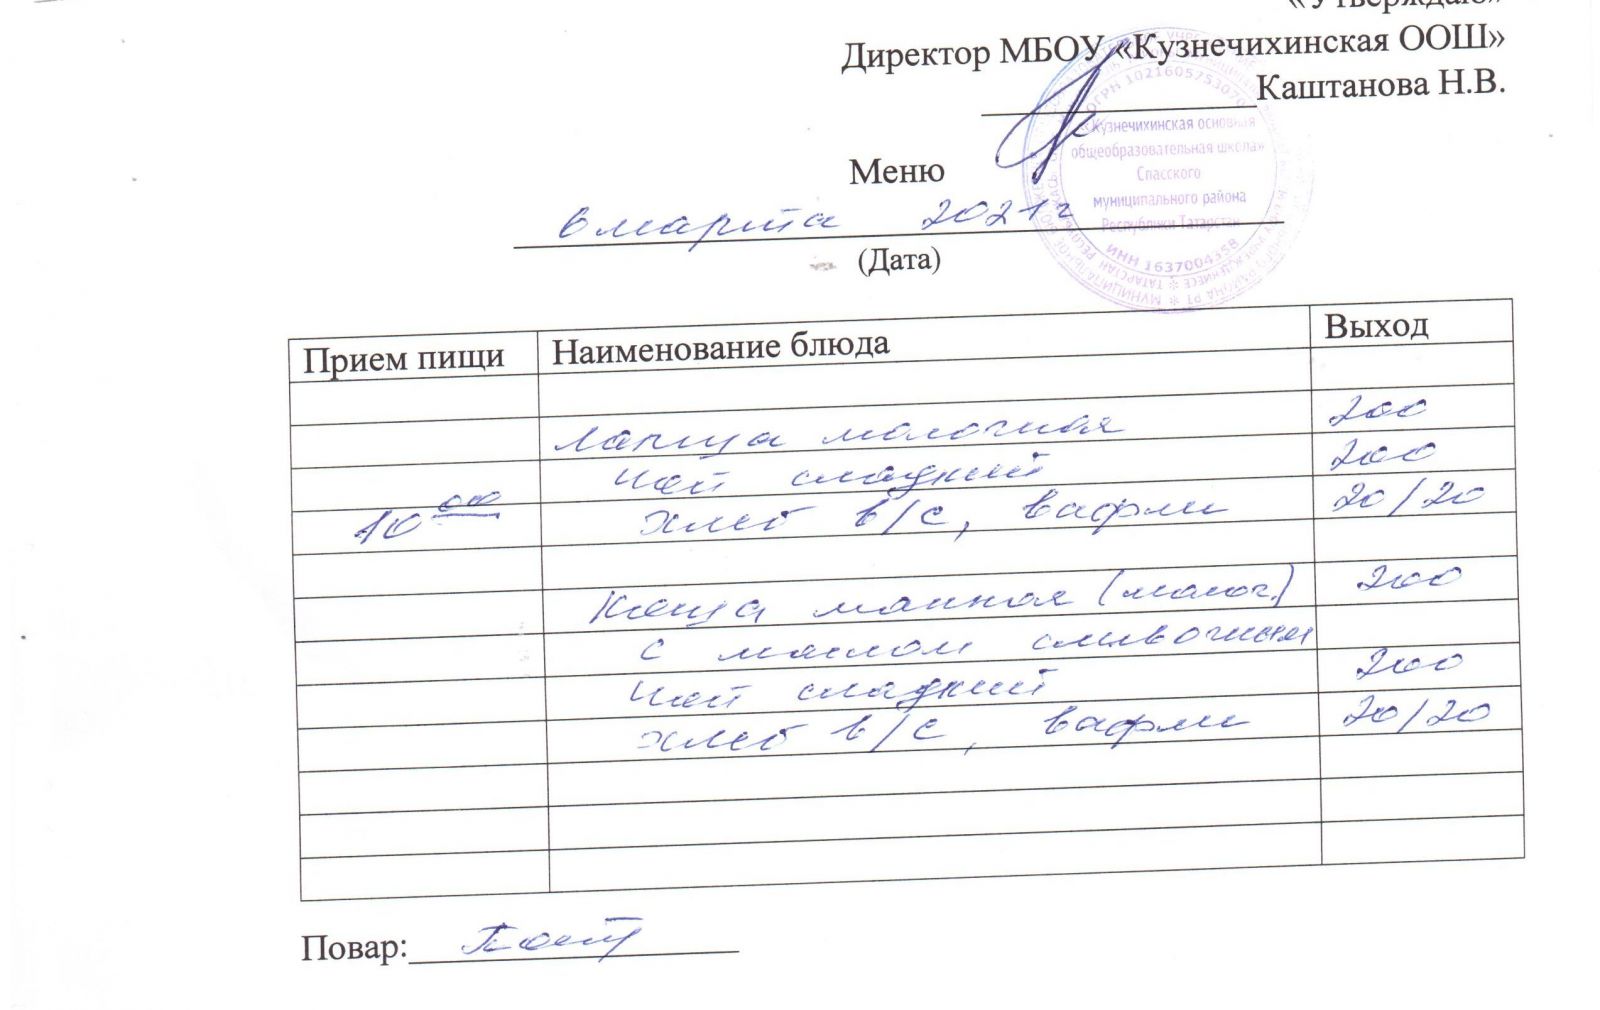 «Утверждаю»
Директор МБОУ «Кузнечихинская ООШ»
Каштанова Н.В.
ОГРН 1021605753070
«Кузнечихинская основная
общеобразовательная школа»
Спасского
муниципального района
Республики Татарстан
ИНН 1637004358
Меню
6 марта 2021г
(Дата)
Прием пищи Наименование блюда Выход
Лапша молочная 200
Чай сладкий 200
10 00 хлеб в/с, вафли 20/20
Каша манная (молоч.) 200
с маслом сливочным
Чай сладкий 200
хлеб в/с, вафли 20/20
Повар: